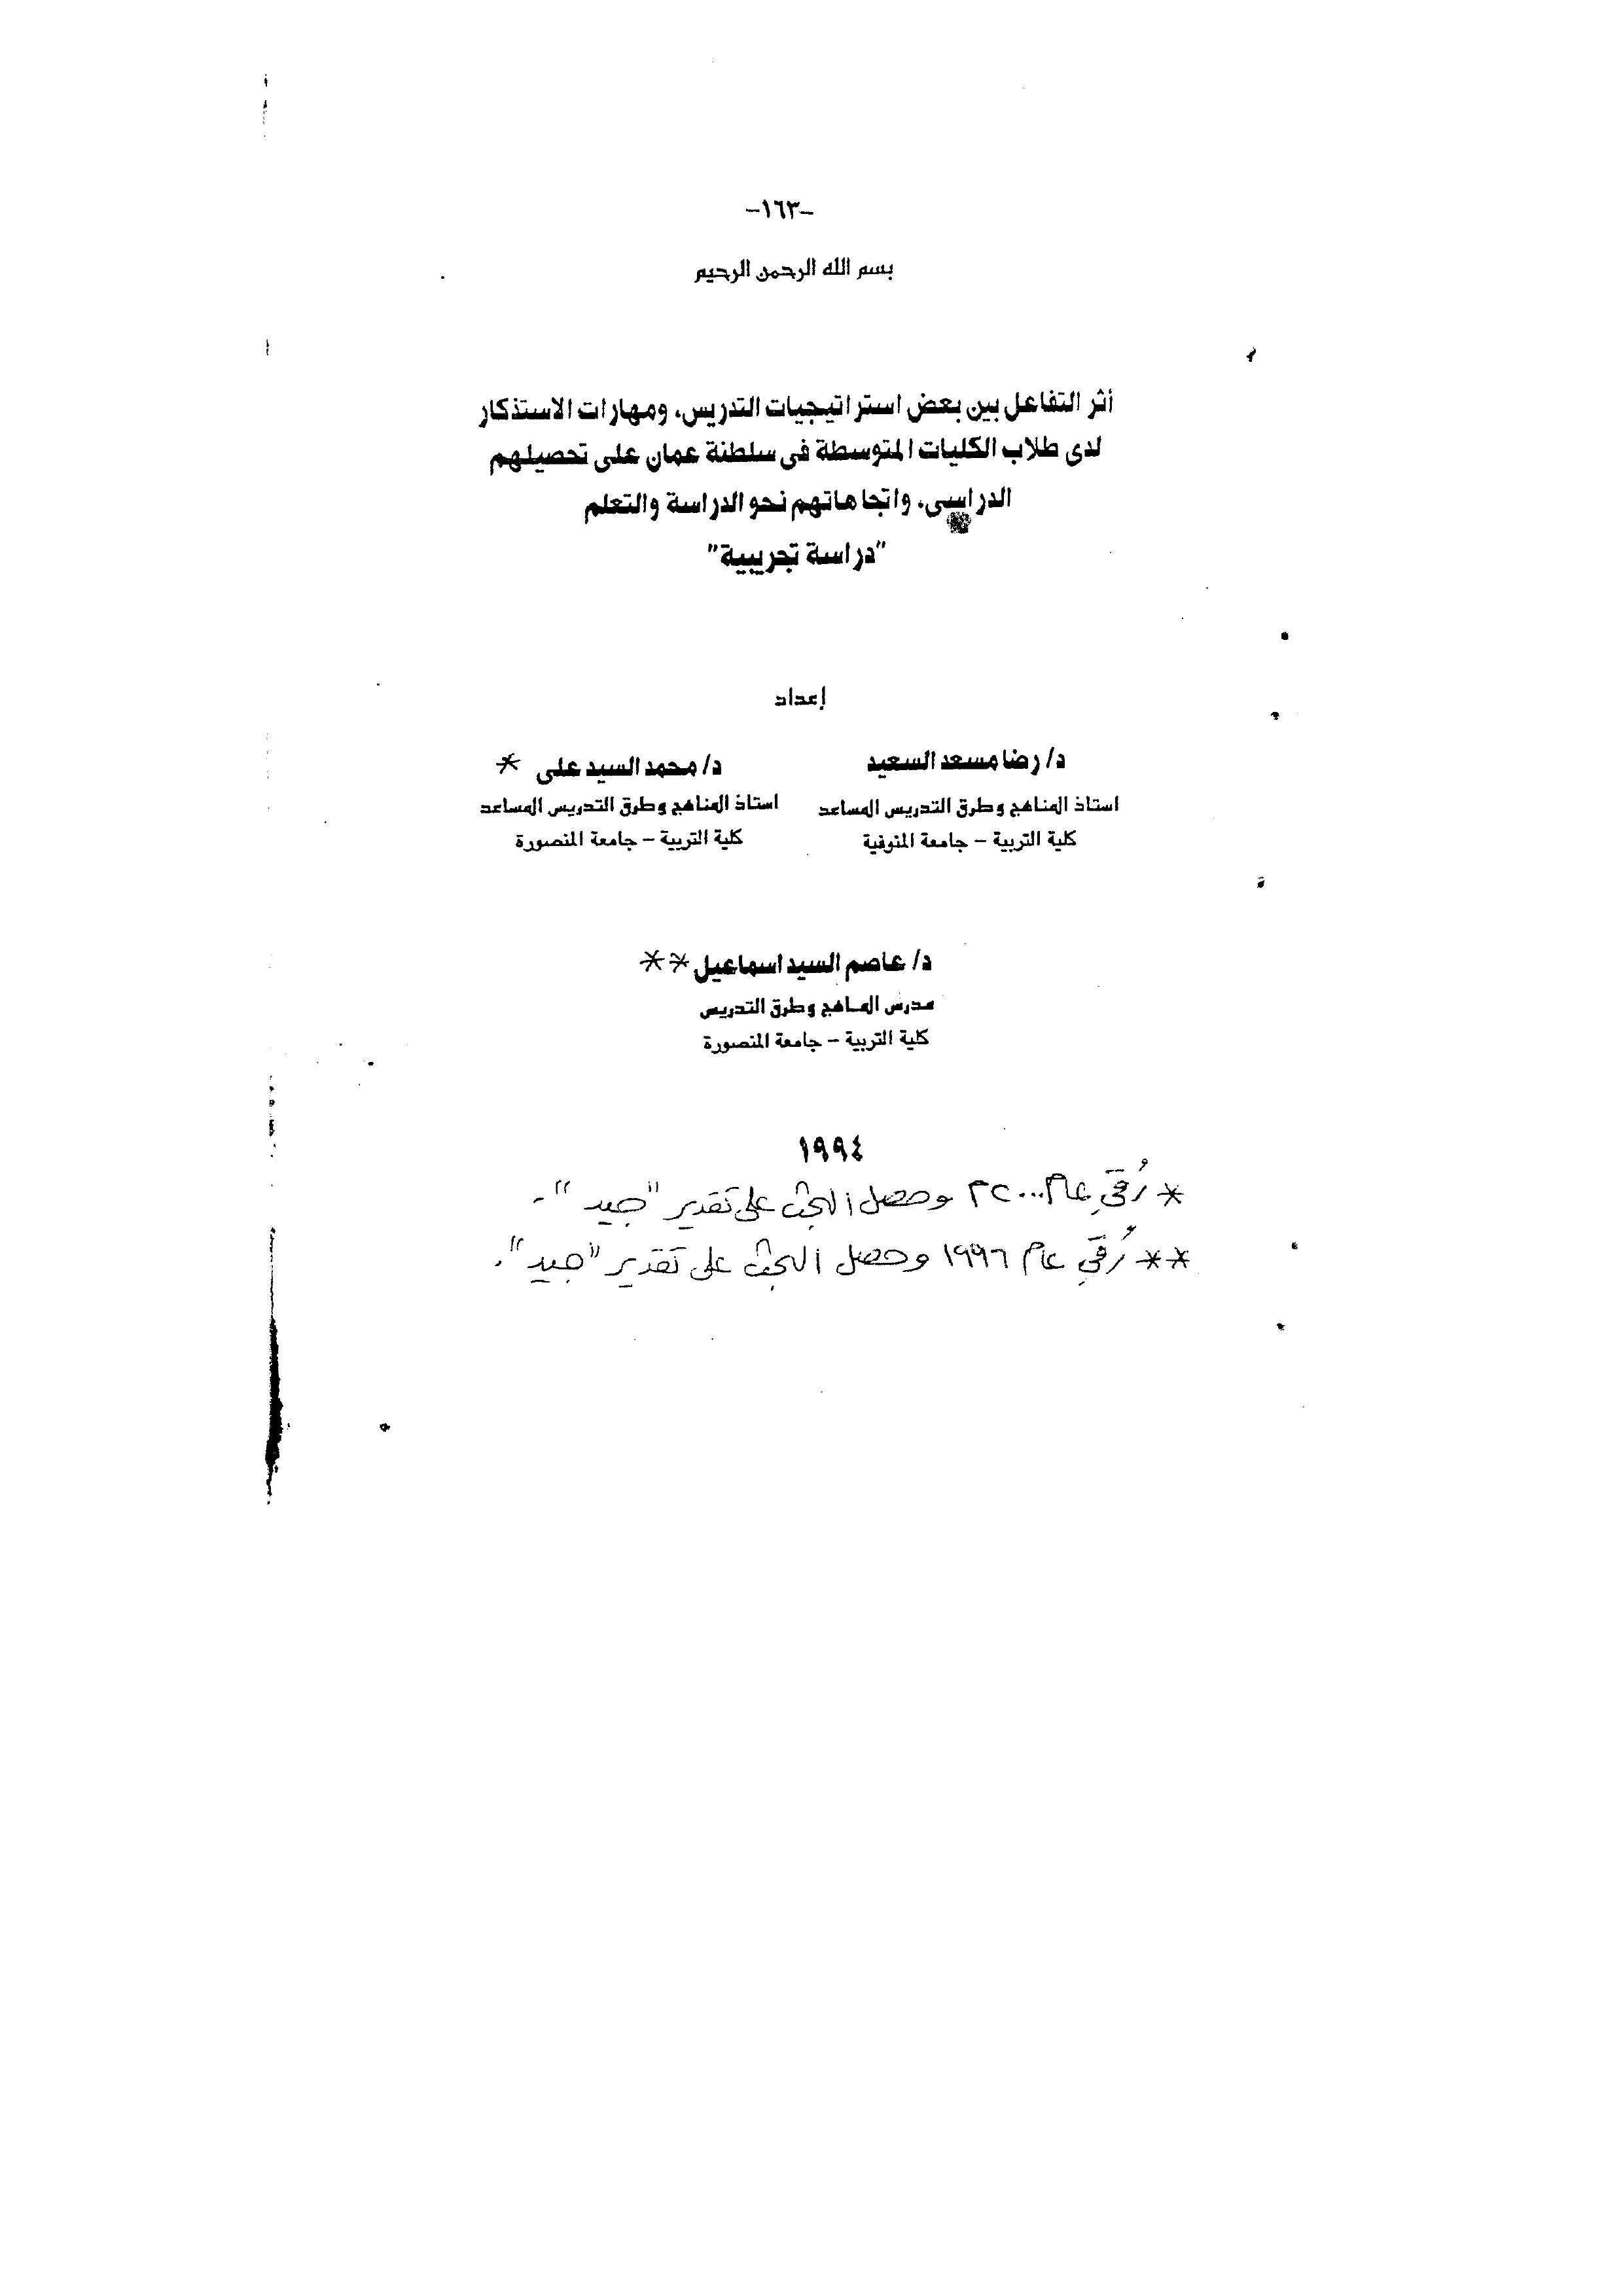 -١٦٣-
بسم الله الرحمن الرحيم
أثر التفاعل بين بعض استراتيجيات التدريس، ومهارات الاستذكار
لدى طلاب الكليات المتوسطة فى سلطنة عمان على تحصيلهم
الدراسى، واتجاهاتهم نحو الدراسة والتعلم
"دراسة تجريبية"
إعداد
د/ رضا مسعد السعيد
استاذ المناهج وطرق التدريس المساعد
كلية التربية - جامعة المنوفية
د/ محمد السيد على *
استاذ المناهج وطرق التدريس المساعد
كلية التربية - جامعة المنصورة
د/ عاصم السيد اسماعيل **
مدرس المناهج وطرق التدريس
كلية التربية - جامعة المنصورة
١٩٩٤
* رُقي عام ٢٠٠٠م وحصل البحث على تقدير "جيد".
** رُقي عام ١٩٩٦ وحصل البحث على تقدير "جيد".